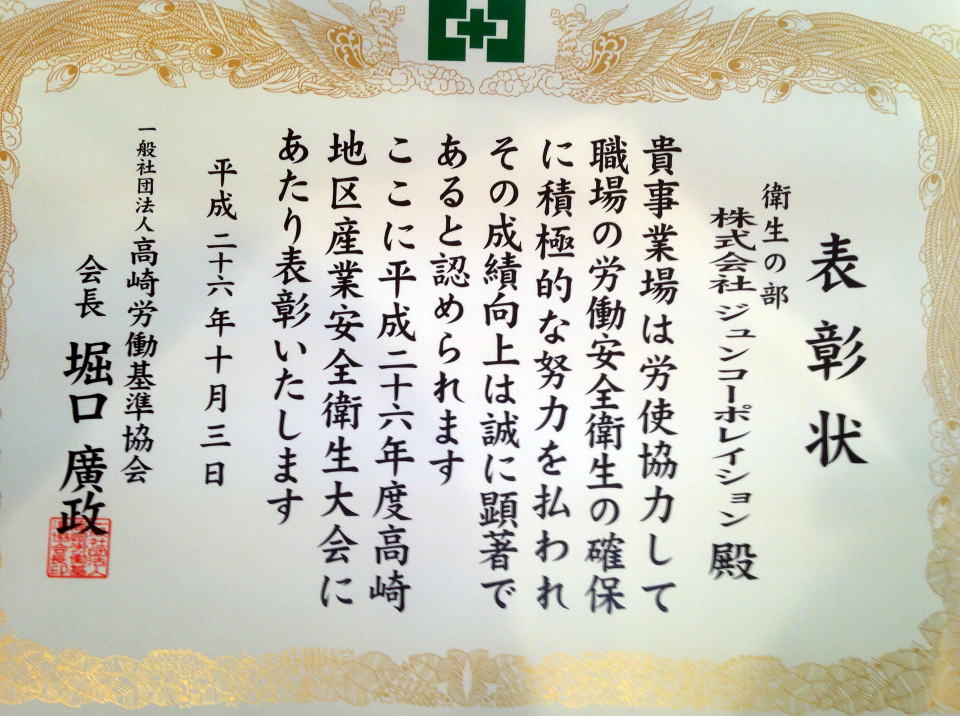 表彰状
衛生の部
株式会社 ジュンコーポレイション 殿
貴事業場は労使協力して
職場の労働安全衛生の確保
に積極的な努力を払われ
その成績向上は誠に顕著で
あると認められます
ここに平成二十六年度高崎
地区産業安全衛生大会に
あたり表彰いたします
平成二十六年十月三日
一般社団法人 高崎労働基準協会
会長 堀口 廣政